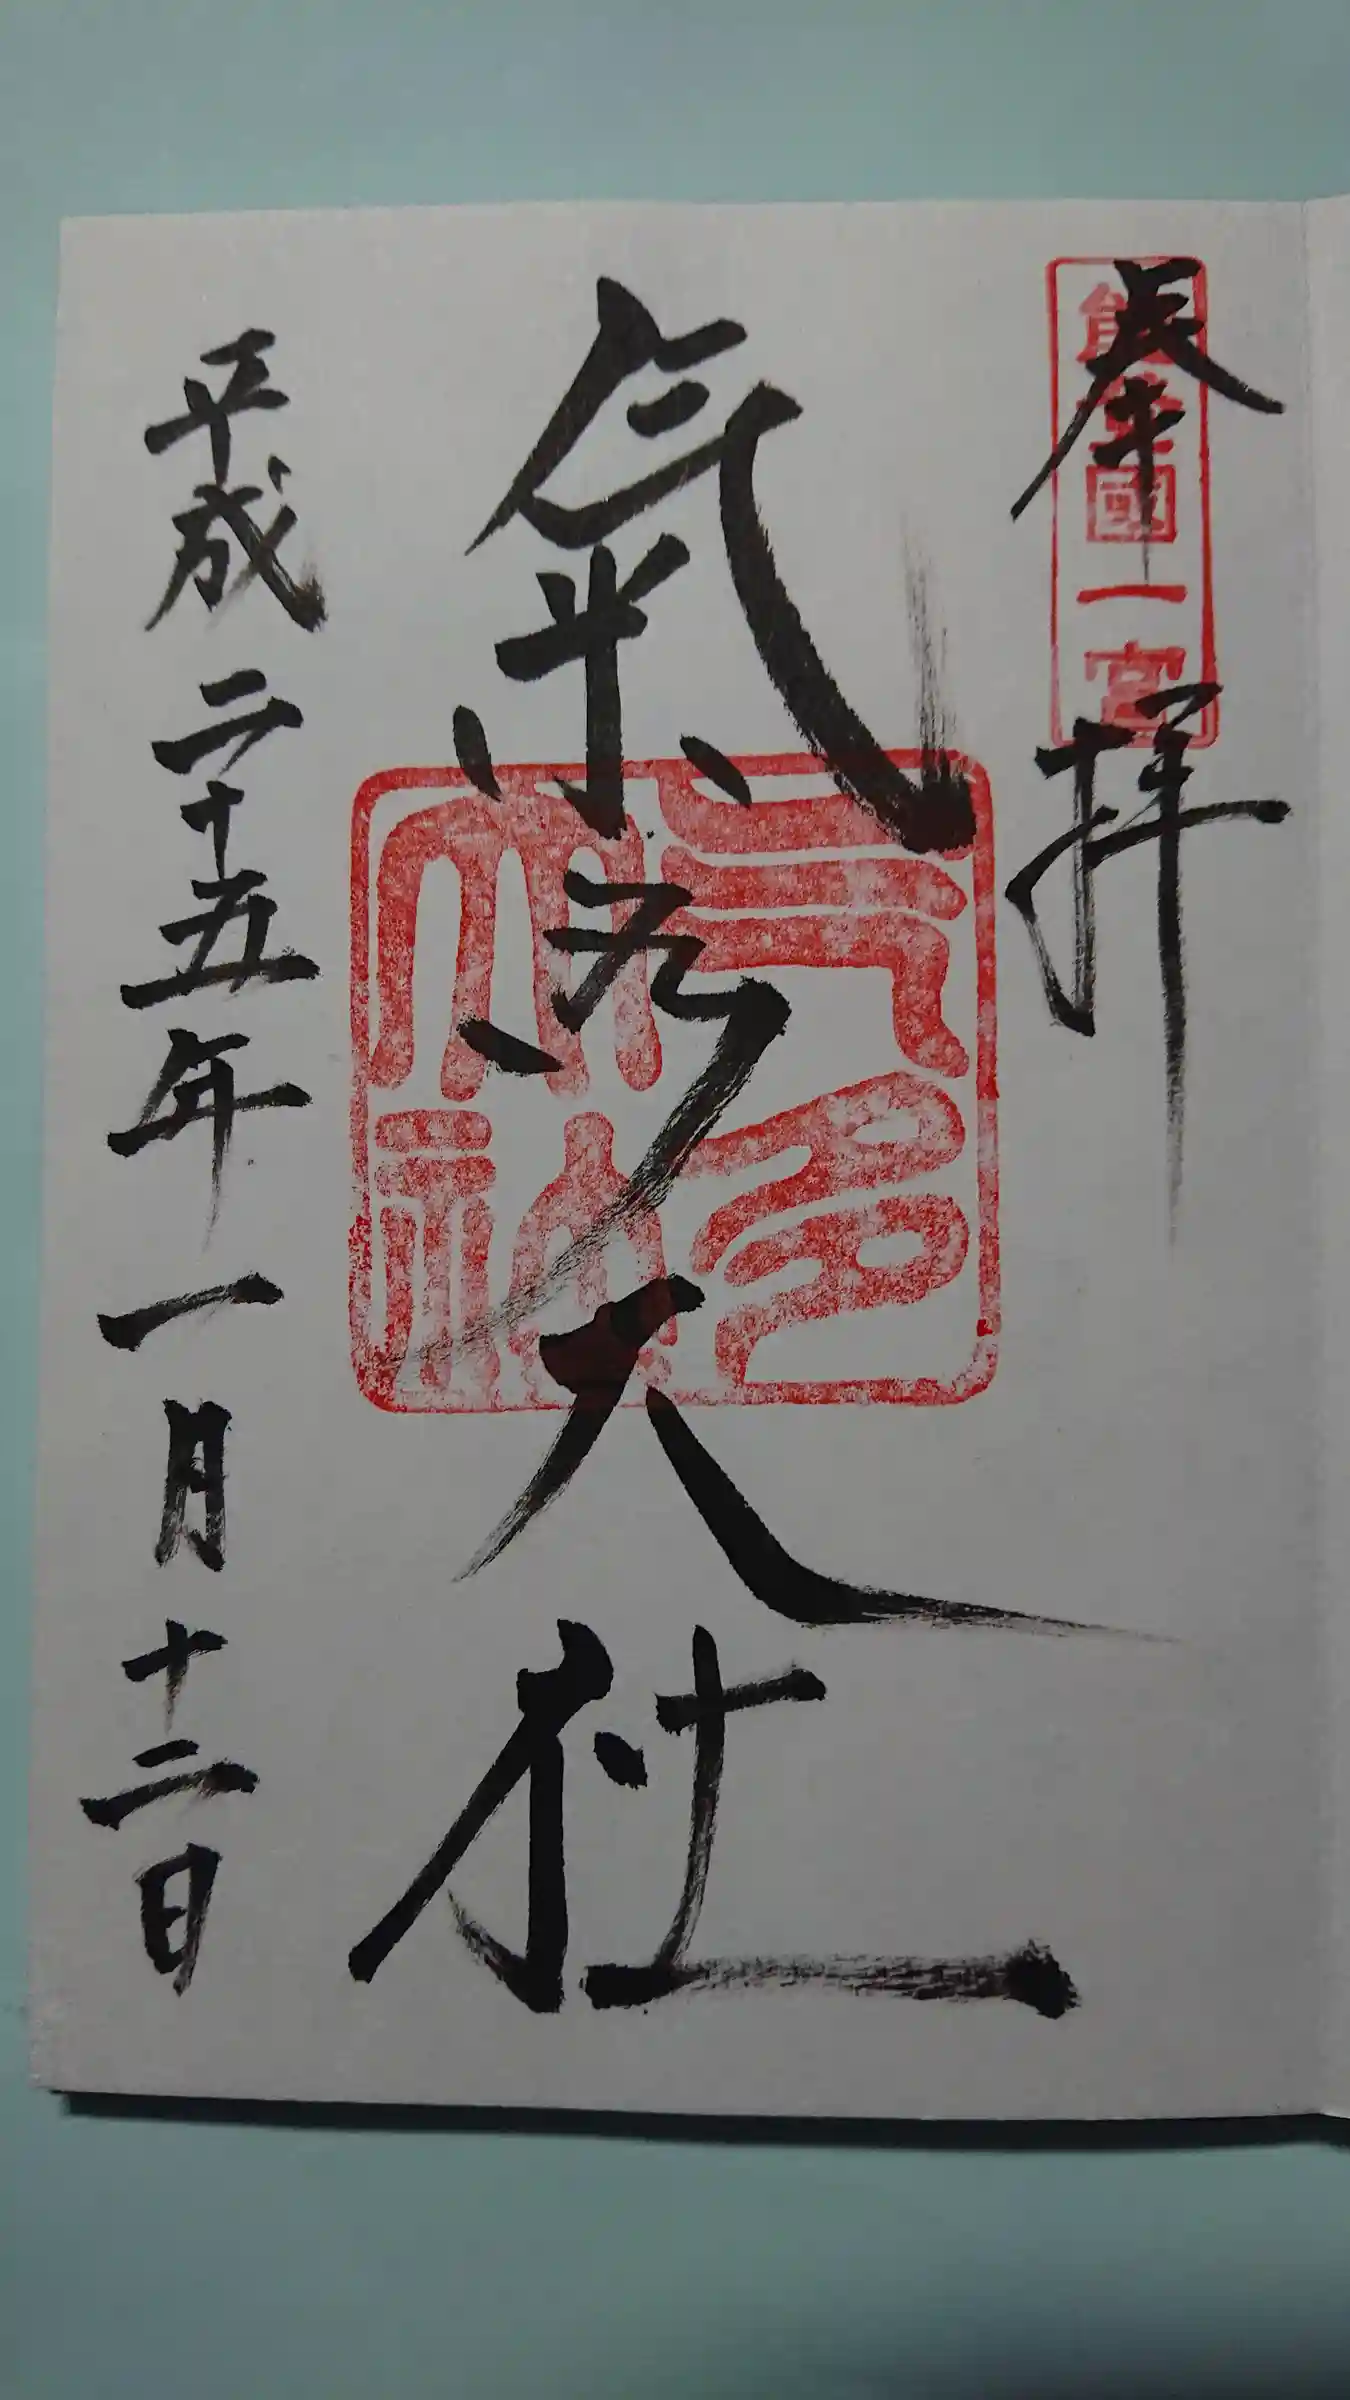 奉拝
能登國一宮
氣多大社
气多大社
平成二十五年一月十二日